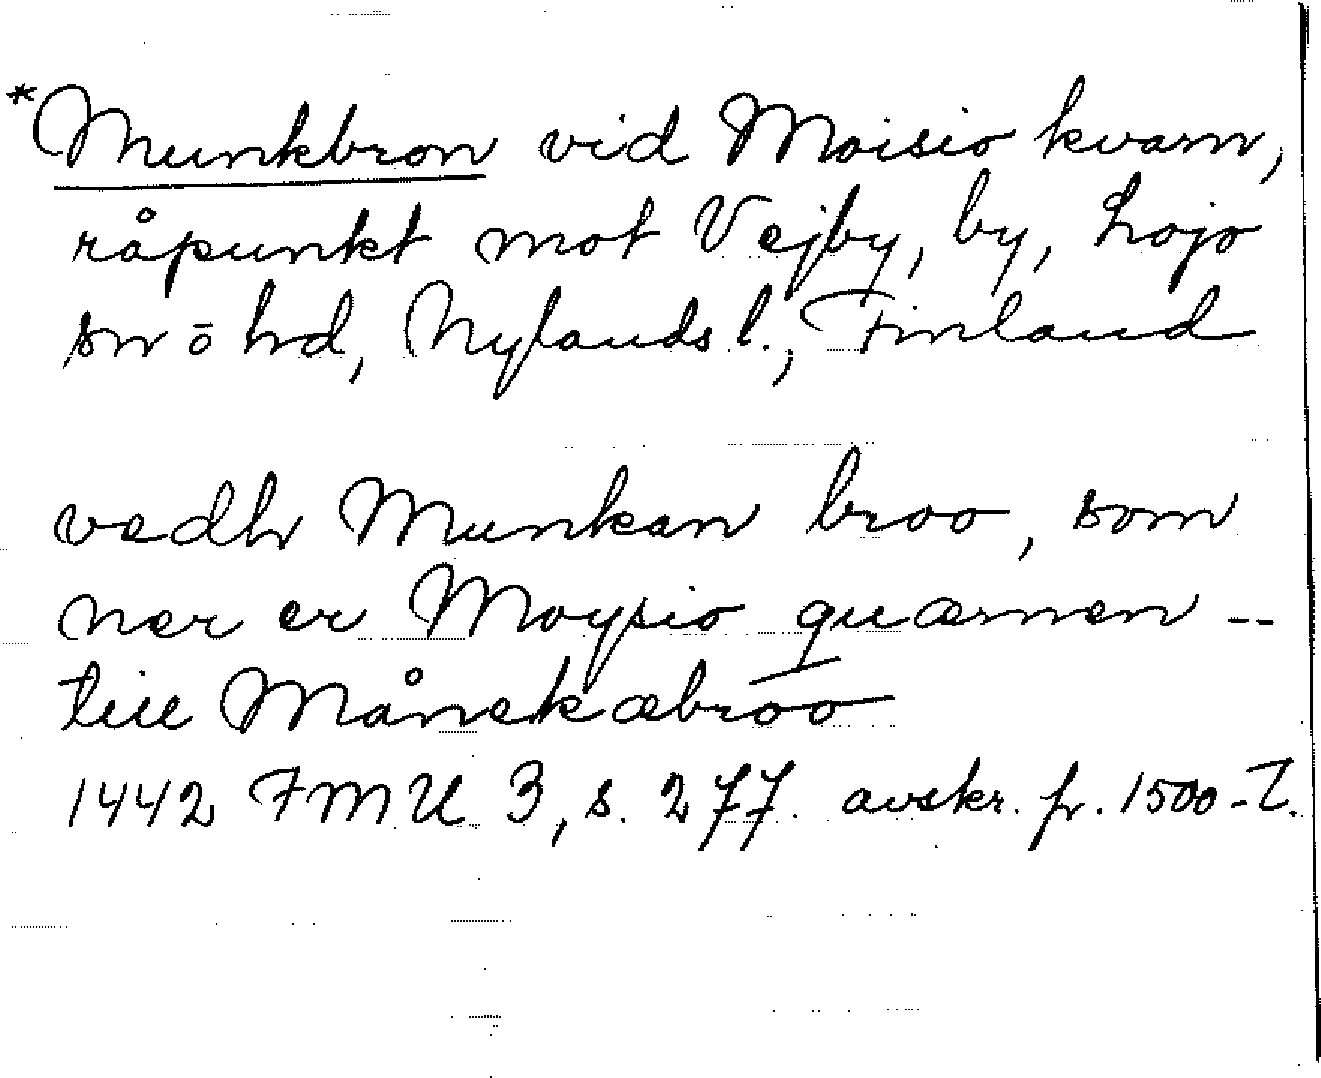 *Munkbron vid Moisio kvarn,
råpunkt mot Vejby, by, Lojo
sn ō hd, Nylands l., Finland
vedh Munkan broo, som
ner er Moysio quærnen --
till Månekæbroo
1442 FMU 3, s. 277. avskr. fr. 1500-T.